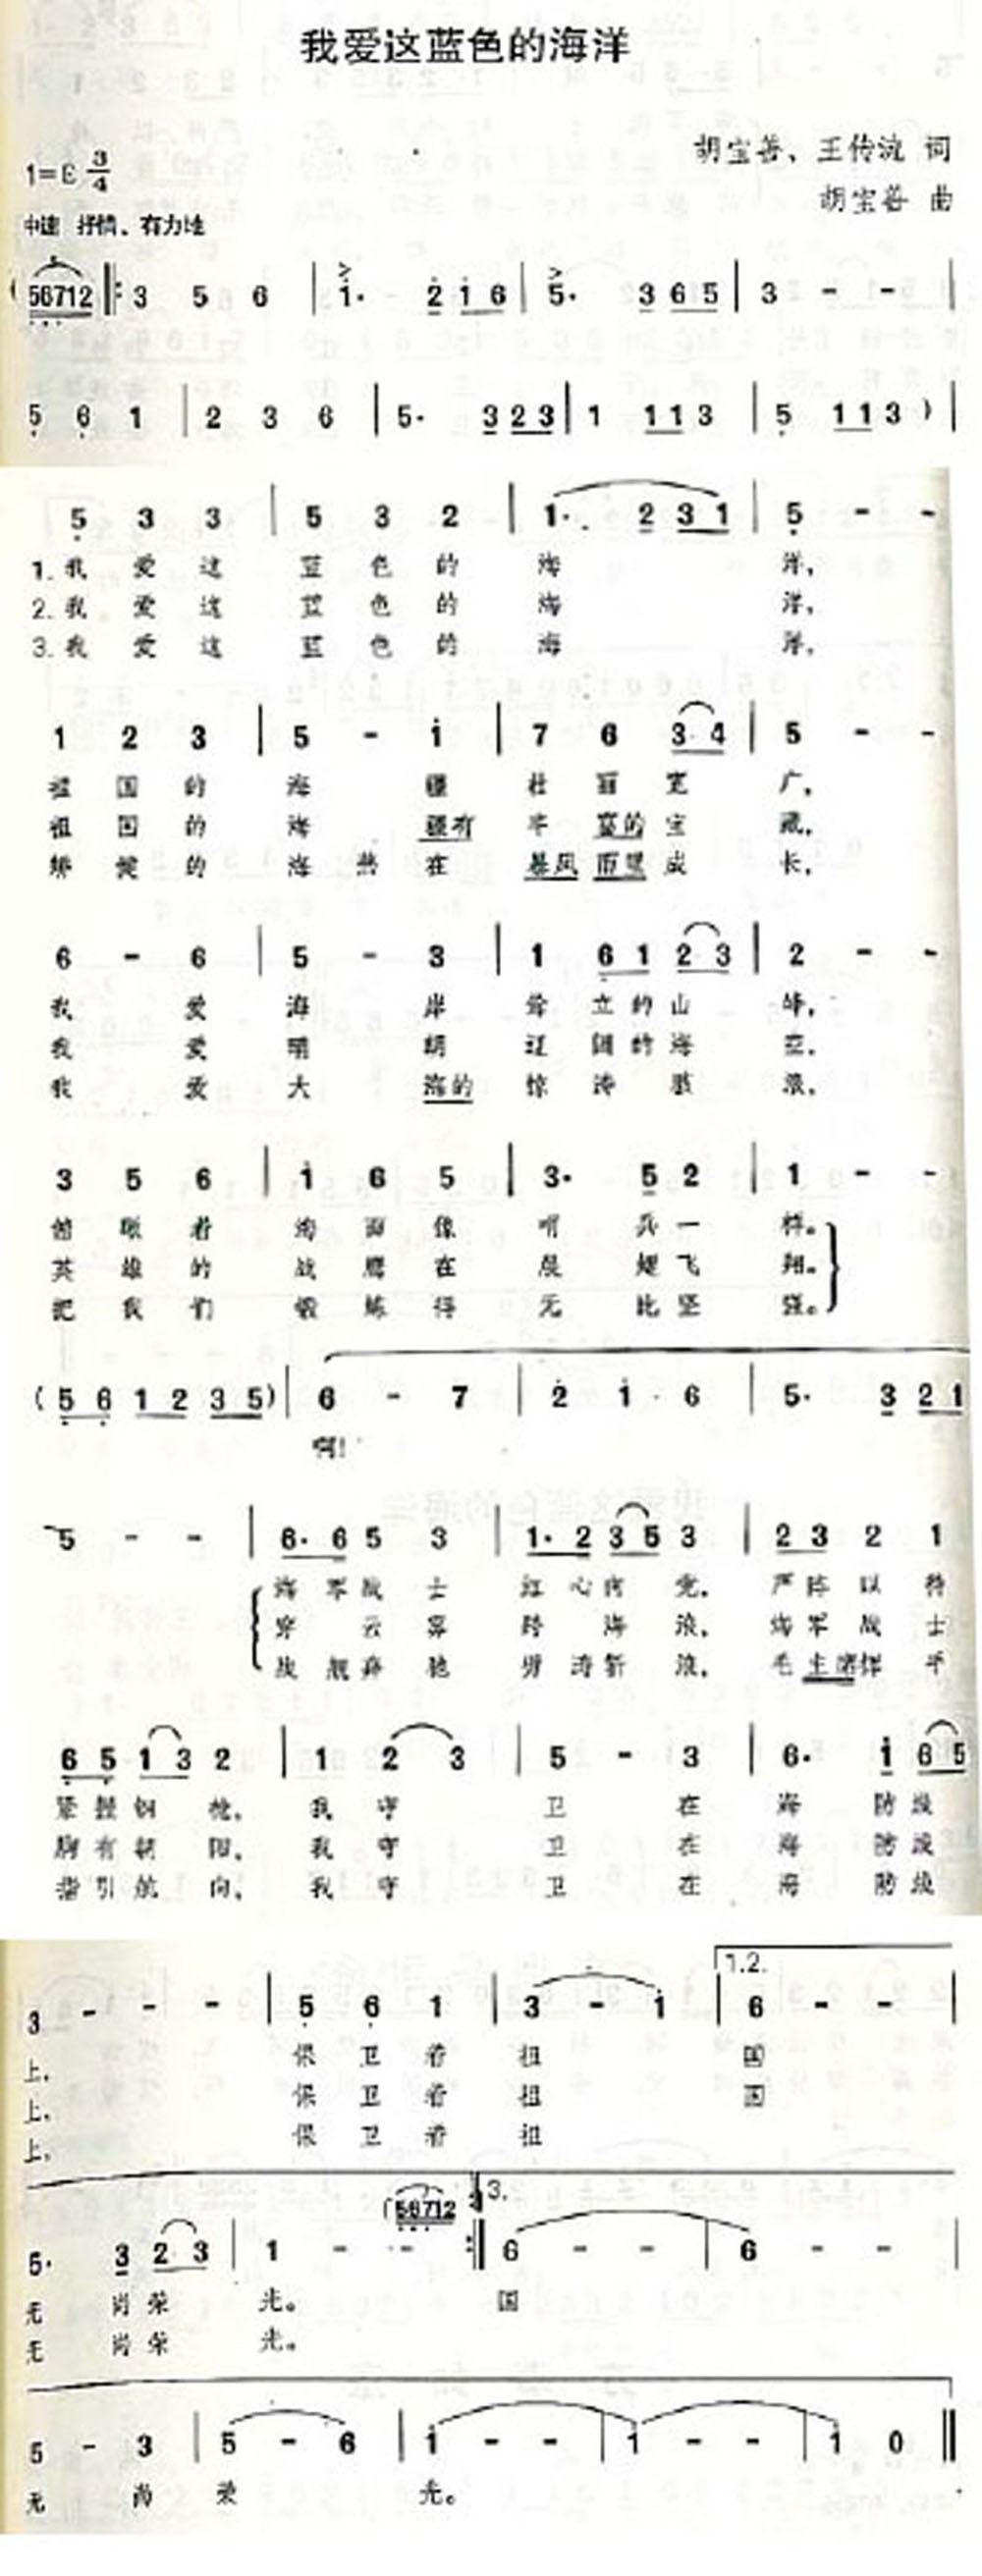 我爱这蓝色的海洋
胡宝善、王传流 词
1=E 3/4
胡宝善 曲
中速 抒情、有力地
(56712 ‖: 3 5 6 | 1· 2 1 6 | 5· 3 6 5 | 3 - - |
5 6 1 | 2 3 6 | 5· 3 2 3 | 1 1 1 3 | 5 1 1 3 ) |
5 3 3 | 5 3 2 | 1· 2 3 1 | 5 - -
1. 我 爱 这 蓝 色 的 海 洋,
2. 我 爱 这 蓝 色 的 海 洋,
3. 我 爱 这 蓝 色 的 海 洋,
1 2 3 | 5 - 1 | 7 6 3· 4 | 5 - -
祖 国 的 海 疆 壮 丽 宽 广,
祖 国 的 海 疆有 丰 富的 宝 藏,
矫 健 的 海 燕 在 暴风 雨里 成 长,
6 - 6 | 5 - 3 | 1 6 1 2· 3 | 2 - -
我 爱 海 岸 耸 立 的 山 峰,
我 爱 晴 朗 辽 阔 的 海 空,
我 爱 大 海的 惊 涛 骇 浪,
3 5 6 | 1 6 5 | 3· 5 2 | 1 - -
俯 瞰 着 海 面 像 哨 兵 一 样。
英 雄 的 战 鹰 在 展 翅 飞 翔。
把 我 们 锻 炼 得 无 比 坚 强。
(5 6 1 2 3 5) | 6 - 7 | 2 1· 6 | 5· 3 2 1
啊!
5 - - | 6· 6 5 3 | 1· 2 3 5 3 | 2 3 2 1
海 军 战 士 红 心 向 党, 严 阵 以 待
穿 云 雾 跨 海 浪, 海 军 战 士
战 舰 奔 驰 劈 涛 斩 浪, 毛 主席 挥 手
6 5 1 3 2 | 1 2 3 | 5 - 3 | 6· 1 6 5
紧 握 钢 枪, 我 守 卫 在 海 防 线
胸 有 朝 阳, 我 守 卫 在 海 防 线
指 引 航 向, 我 守 卫 在 海 防 线
3 - - - | 5 6 1 | 3 - 1 | 1.2. 6 - - |
上, 保 卫 着 祖 国
上, 保 卫 着 祖 国
上, 保 卫 着 祖
5· 3 2· 3 | 1 - - (56712 :‖ 3. 6 - - | 6 - - |
无 尚 荣 光。 国
无 尚 荣 光。
5 - 3 | 5 - 6 | 1 - - | 1 - - | 1 0 ‖
无 尚 荣 光。